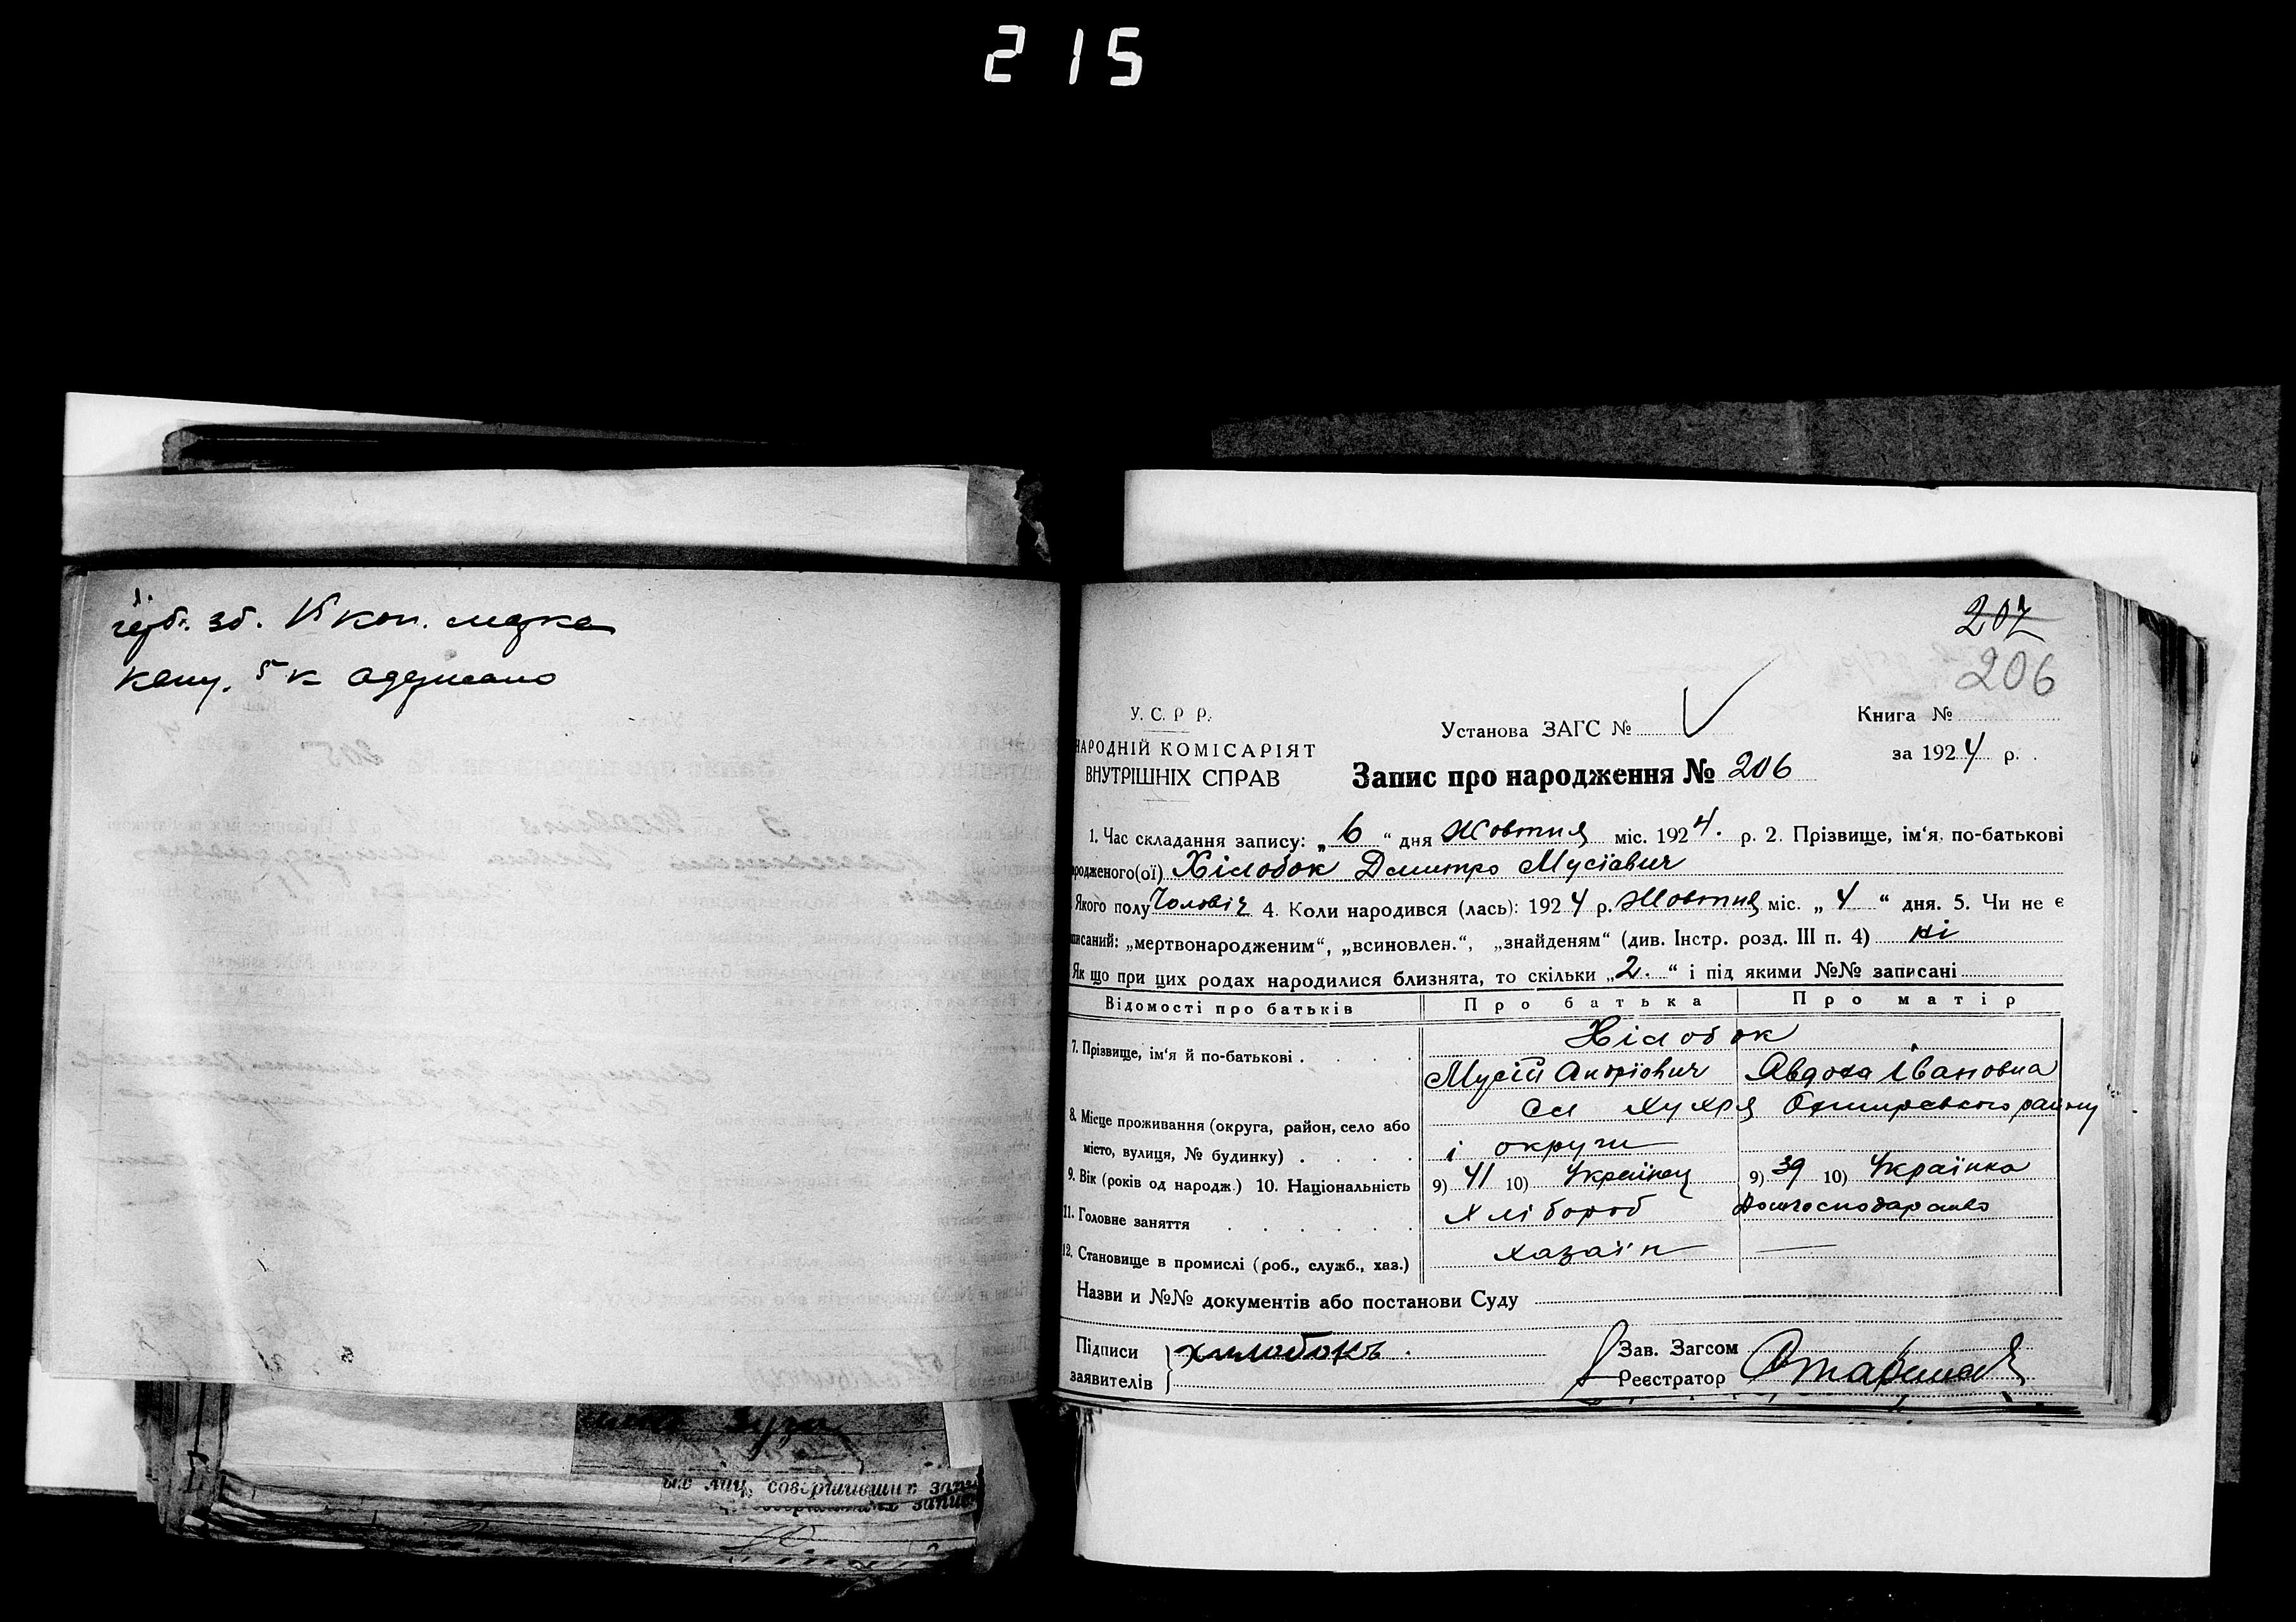 215
зб. 15 коп. марка
канц. 5 к одержано
207
206
У. С. Р. Р.
НАРОДНІЙ КОМІСАРІЯТ
ВНУТРІШНІХ СПРАВ
Установа ЗАГС №
Книга №
за 1924 р.
Запис про народження № 206
1. Час складання запису: „6“ дня Жовтня міс. 1924. р. 2. Прізвище, ім'я, по-батькові
родженого(ої) Хілобок Дмитро Мусієвич
Якого полу Чоловіч 4. Коли народився (лась): 1924 р. Жовтня міс. „4“ дня. 5. Чи не є
писаний: „мертвонародженим“, „всиновлен.“, „знайденям“ (див. Інстр. розд. III п. 4) ні
Як що при цих родах народилися близнята, то скільки „2.“ і під якими №№ записані
Відомості про батьків Про батька Про матір
7. Прізвище, ім'я й по-батькові . . . . Хілобок
Мусій Андрієвич Авдотя Івановна
8. Місце проживання (округа, район, село або
місто, вулиця, № будинку) . . . .
сл Хухря Охтирського району
і округи
9. Вік (років од народж.) 10. Національність 9) 41 10) Українец 9) 39 10) Українка
11. Головне заняття . . . . . . Хлібороб Домгосподарство
12. Становище в промислі (роб., служб., хаз.) хазаїн —
Назви и №№ документів або постанови Суду
Підписи
заявителів
хилобокъ.
Зав. Загсом
Реєстратор
ых лиц, совершивших запи